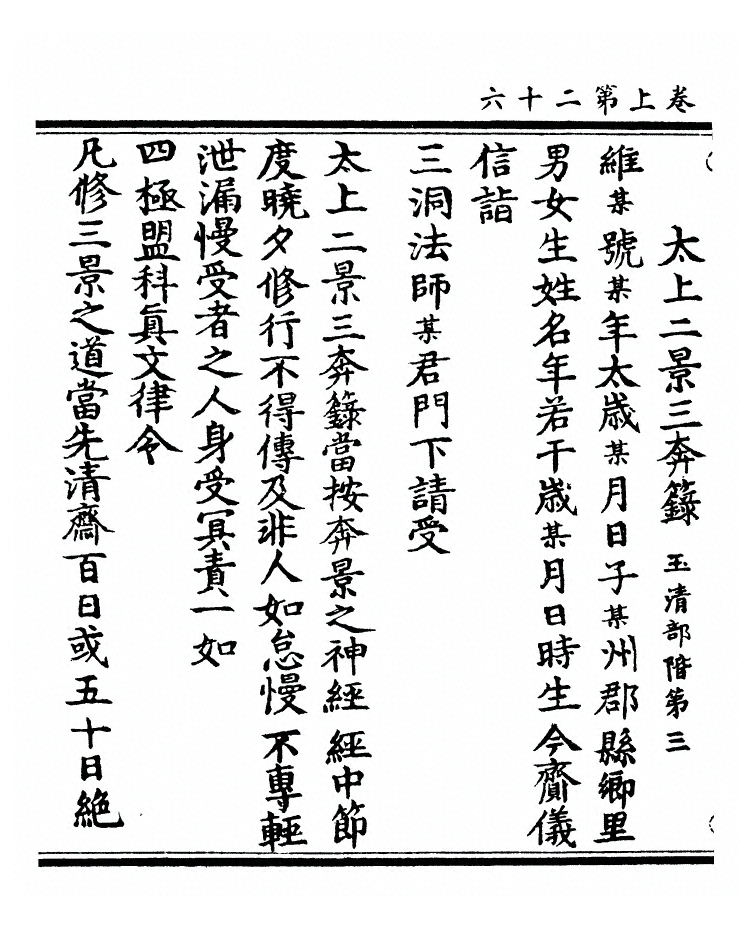 卷上第二十六
太上二景三奔籙 玉清部階第三
維某號某年太歲某月日子某州郡縣鄉里
男女生姓名年若干歲某月日時生今齎儀
信詣
三洞法師某君門下請受
太上二景三奔籙當按奔景之神經經中節
度曉夕修行不得傳及非人如怠慢不專輕
泄漏慢受者之人身受冥責一如
四極盟科眞文律令
凡修三景之道當先清齋百日或五十日絶